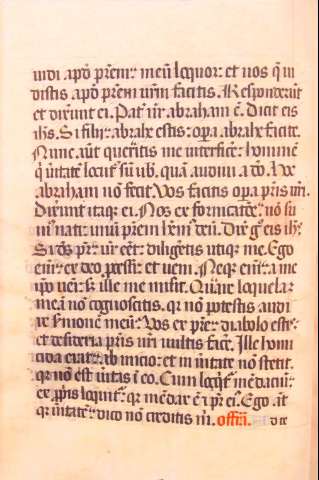 uidi apd prem meu loquor et uos q ui
distis apd prem urm facitis. Responderut
et dixerunt ei. Pat nr abraham e. Dicit eis
ihs. Si filij abrahe estis opera abrahe facite.
Nunc aut queritis me interficere hominem
q uitate locut sum ub. quam audiui a do. hoc
abraham no fecit. Vos facitis opa pris uri.
Dixerunt itaq ei. Nos ex fornicatoe no su
mus nati unu prem hems deu. Dix g eis ihs
Si ds pr ur eet diligetis utiq me. Ego
enim ex deo processi et ueni. Neq eni a me
ipo ueni s ille me misit. Quare loquelam
mea no cognoscitis. qr no potestis audi
re smone meu. Vos ex pre diabolo estis
et desideria pris uri uultis facere. Ille homi
cida erat ab inicio et in uitate no stetit.
qr no est uitas i eo. Cum loquit mendaciu
ex pprijs loquit qr mendax e i pr ei. Ego aut
qr uitate dico no creditis m. offm.